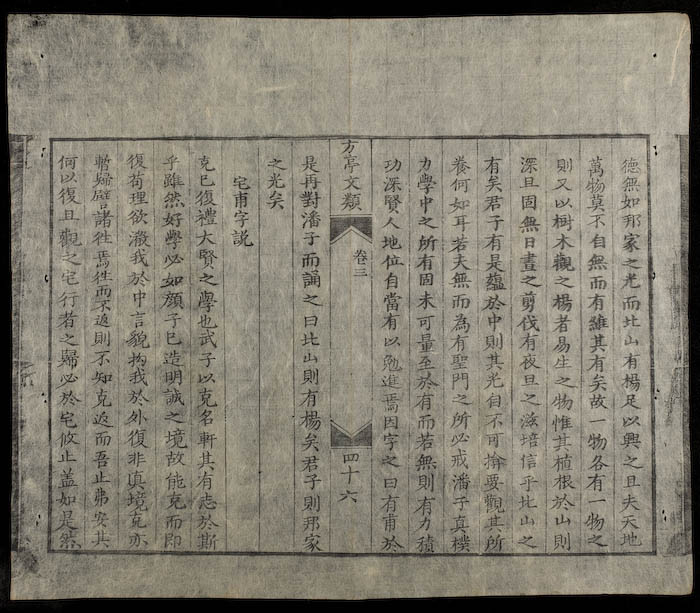 德無如邦家之光而北山有楊足以興之且夫天地
萬物莫不自無而有雖其有矣故一物各有一物之
則又以樹木觀之楊者易生之物惟其植根於山則
深且固無日晝之剪伐有夜旦之滋培信乎北山之
有矣君子有是蘊於中則其光自不可揜要觀其所
養何如耳若夫無而為有聖門之所必戒潘子真樸
力學中之所有固未可量至於有而若無則有力積
功深賢人地位自當有以勉進焉因字之曰有甫於
方亭文類
卷三
四十六
是再對潘子而誦之曰北山則有楊矣君子則邦家
之光矣
宅甫字説
克已復禮大賢之學也武子以克名軒其有志於斯
乎雖然好學必如顔子已造明誠之境故能克而即
復苟理欲潋我於中言貌拘我於外復非真境克亦
暫歸譬諸徃焉徃而不返則不知克返而吾止弗安其
何以復且觀之宅行者之歸必於宅攸止盖如是然